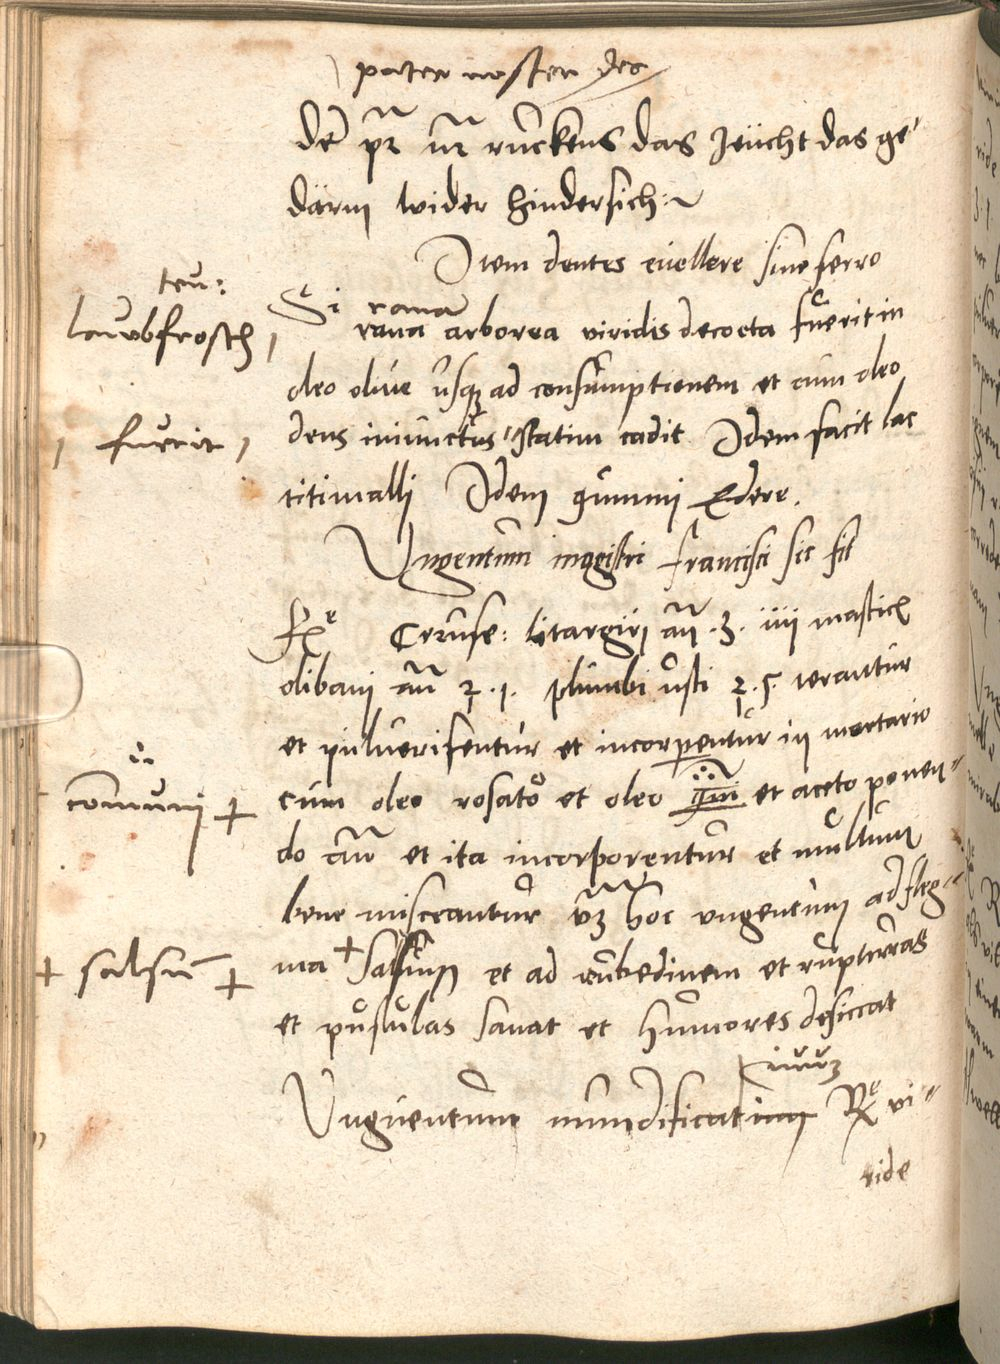 pater noster des
dē pr̄ nr̄ ruckens das zeücht das ge-
därm wider hindersich:~
Item dentes euellere sine ferro
teu:
laubfrosch /
Si rana
rana arborea viridis decocta fuerit in
oleo oliue usq₃ ad consumptionem et cum oleo
/ fuerit /
dens iniunctus statim cadit Idem facit lac
titimalli Idem gummi Edere.
Vngentum mgistri francisci sic fit
Rͤ Ceruse: litargirj an̄ .ʒ. iiij mastic
olibani an̄ ʒ .j. plumbi usti ʒ. s. terantur
et puluerisentur et incorpentur in mortario
communj +
cum oleo rosato et oleo et aceto ponen-
do an̄ et ita incorporentur et multum
bene misceantur vʒ hoc vngentum ad fleg-
+ salsū +
ma + salsum et ad rubedinem et rupturas
et pusulas sanat et humores desiccat
iuuʒ
Vnguentum mundificatium Rͤ vi-
ride